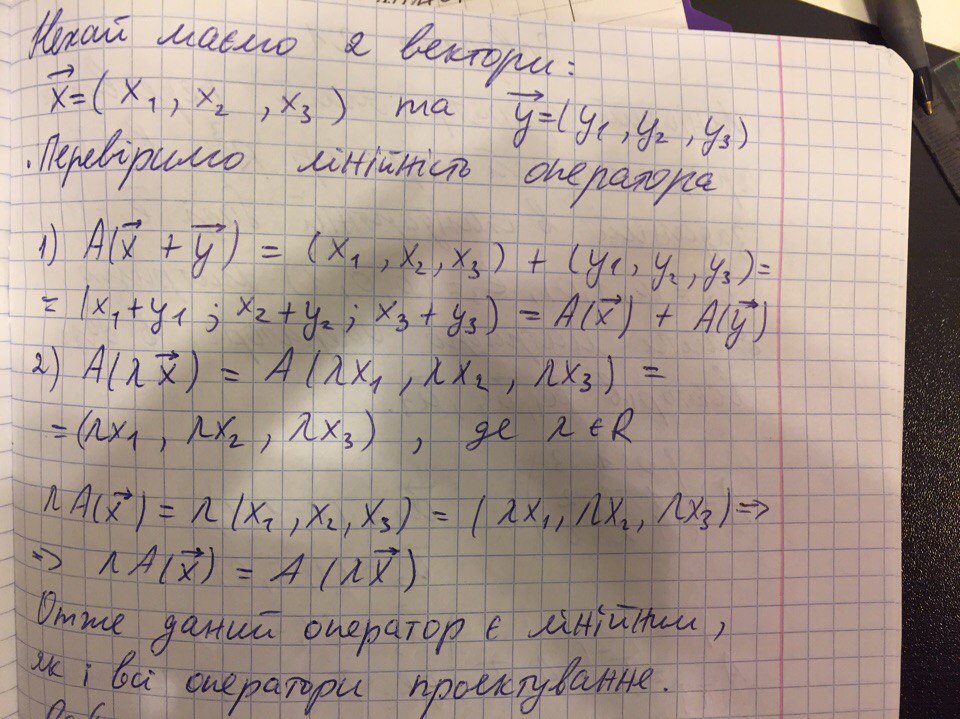 Нехай маємо 2 вектори:
x⃗=( x₁ , x₂ , x₃ ) та y⃗=(y₁ , y₂ , y₃)
. Перевіримо лінійність оператора
1) A(x⃗ + y⃗) = (x₁ , x₂, x₃) + (y₁, y₂, y₃)=
= (x₁+y₁ ; x₂+y₂ ; x₃+y₃) = A(x⃗) + A(y⃗)
2) A(λx⃗) = A(λx₁ , λx₂ , λx₃) =
=(λx₁ , λx₂ , λx₃) , де λ∈R
λA(x⃗) = λ(x₁, x₂, x₃) = (λx₁, λx₂, λx₃)=>
=> λA(x⃗) = A(λx⃗)
Отже даний оператор є лінійним,
як і всі оператори проєктування.